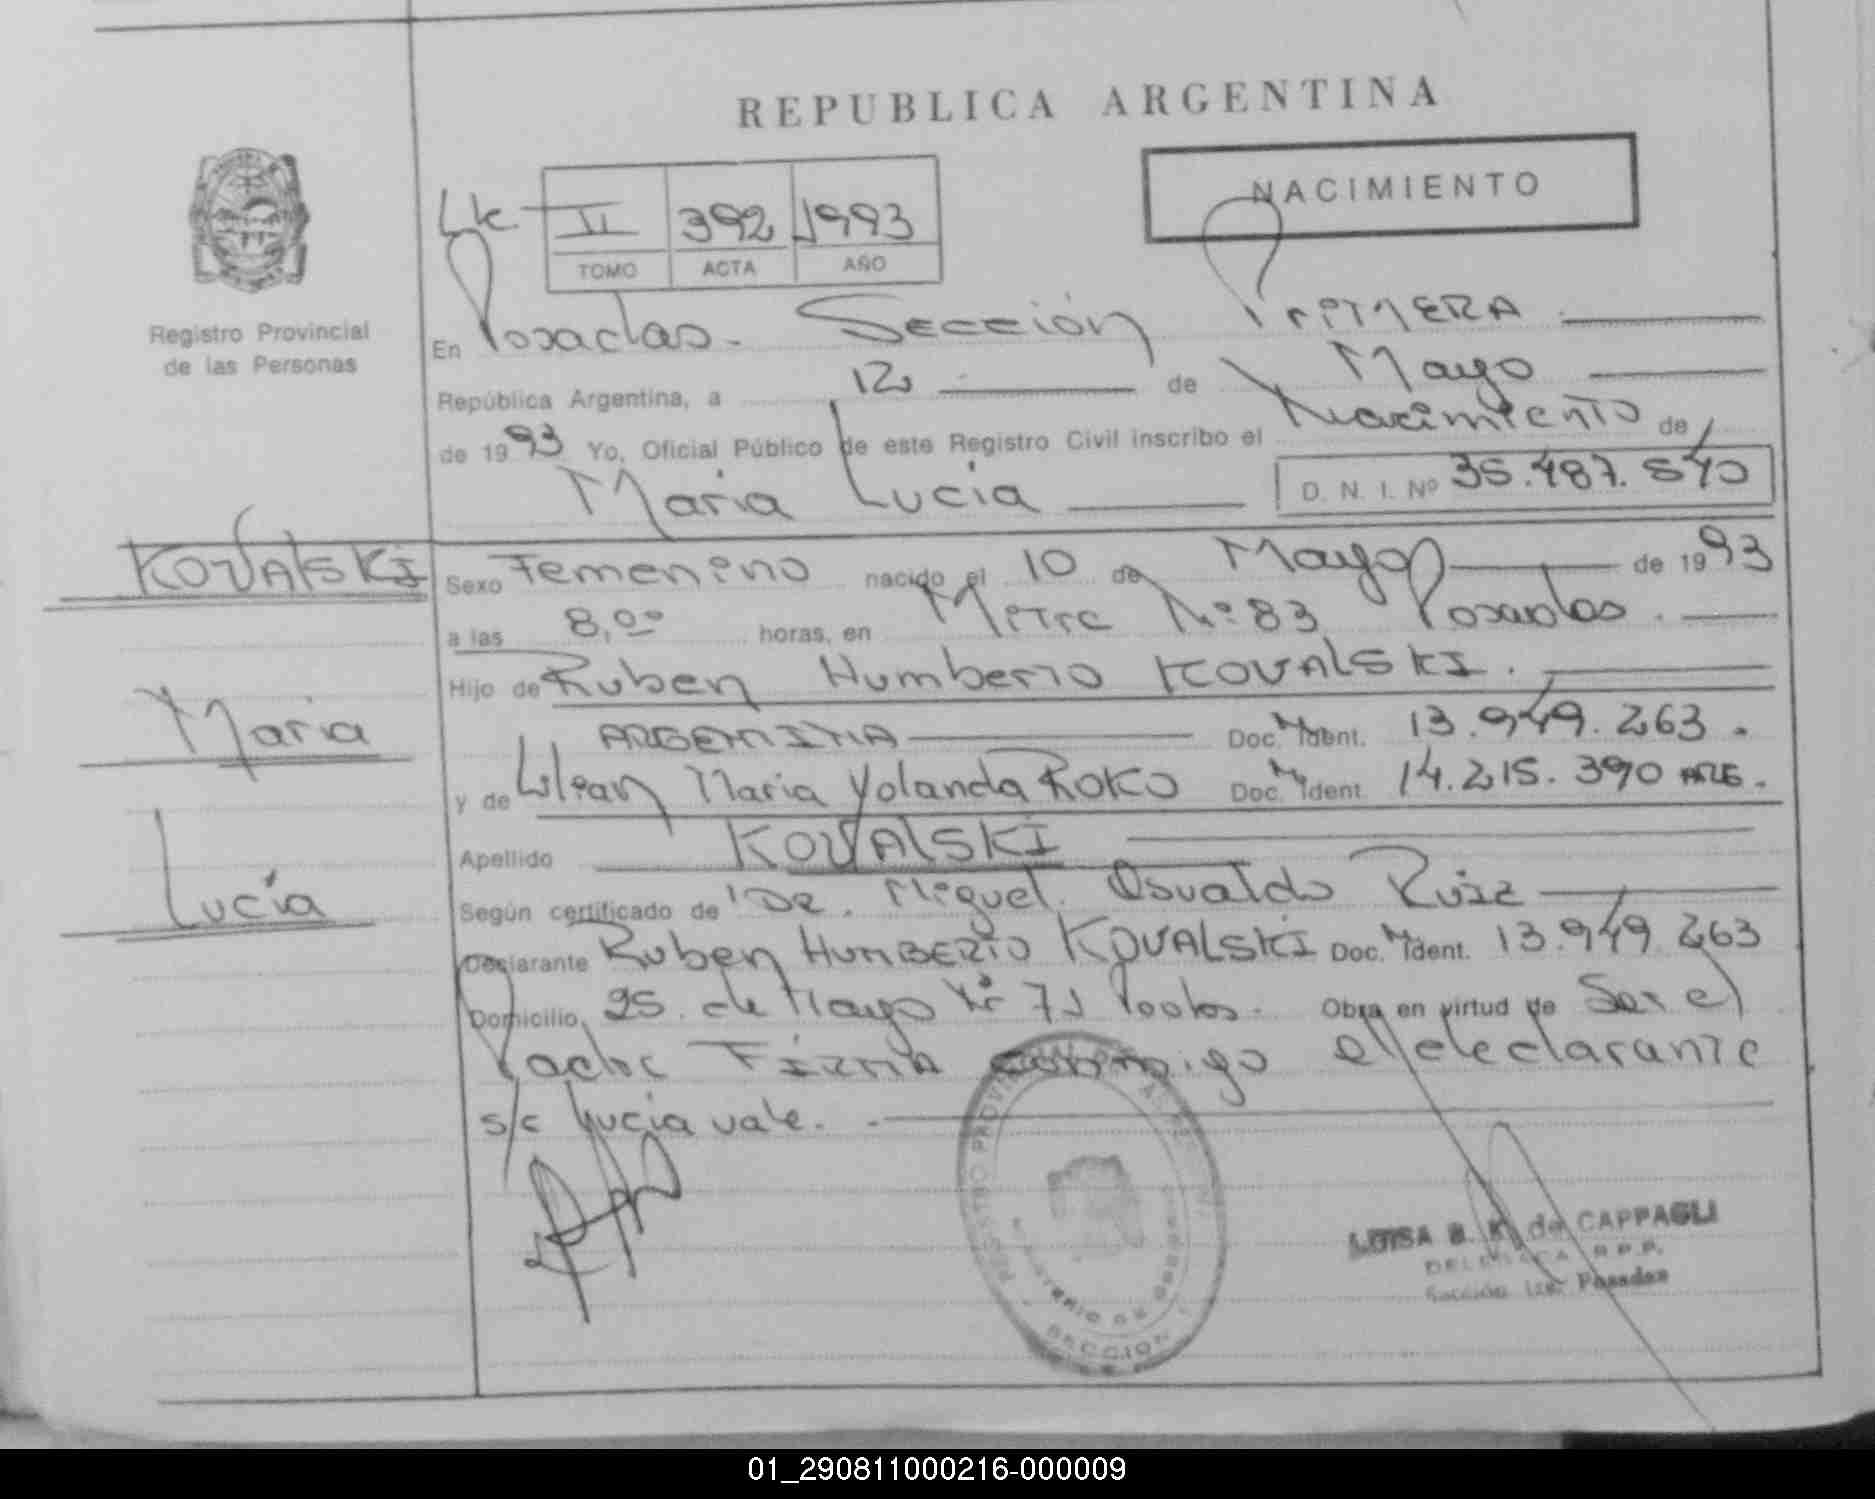 REPUBLICA ARGENTINA
NACIMIENTO
II 392 1993
TOMO ACTA AÑO
Registro Provincial
de las Personas
En Posadas - Sección Primera
República Argentina, a 12 de Mayo
de 1993 Yo, Oficial Público de este Registro Civil inscribo el Nacimiento de
Maria Lucia D. N. I. Nº 35.487.840
KOVALSKI
Maria
Lucía
Sexo Femenino nacido el 10 de Mayo de 1993
a las 8,00 horas, en Mitre Nº 83 Posadas.
Hijo de Ruben Humberto KOVALSKI.
ARGENTINA Doc. Ident. 13.949.263.
y de Lilian Maria Yolanda Roko Doc. Ident. 14.215.390 ARG.
Apellido KOVALSKI
Según certificado de Dr. Miguel Osvaldo Ruiz
Declarante Ruben HUMBERTO KOVALSKI Doc. Ident. 13.949.263
Domicilio 25 de Mayo Nº 71 Obra en virtud de Ser el
Padre Firma conmigo el declarante
s/c Lucia vale.
LUISA B. K. de CAPPAGLI
DELEGADA R.P.P.
Sección 1ra. Posadas
REGISTRO PROVINCIAL DE LAS PERSONAS
MINISTERIO DE GOBIERNO
SECCION 1
01_290811000216-000009